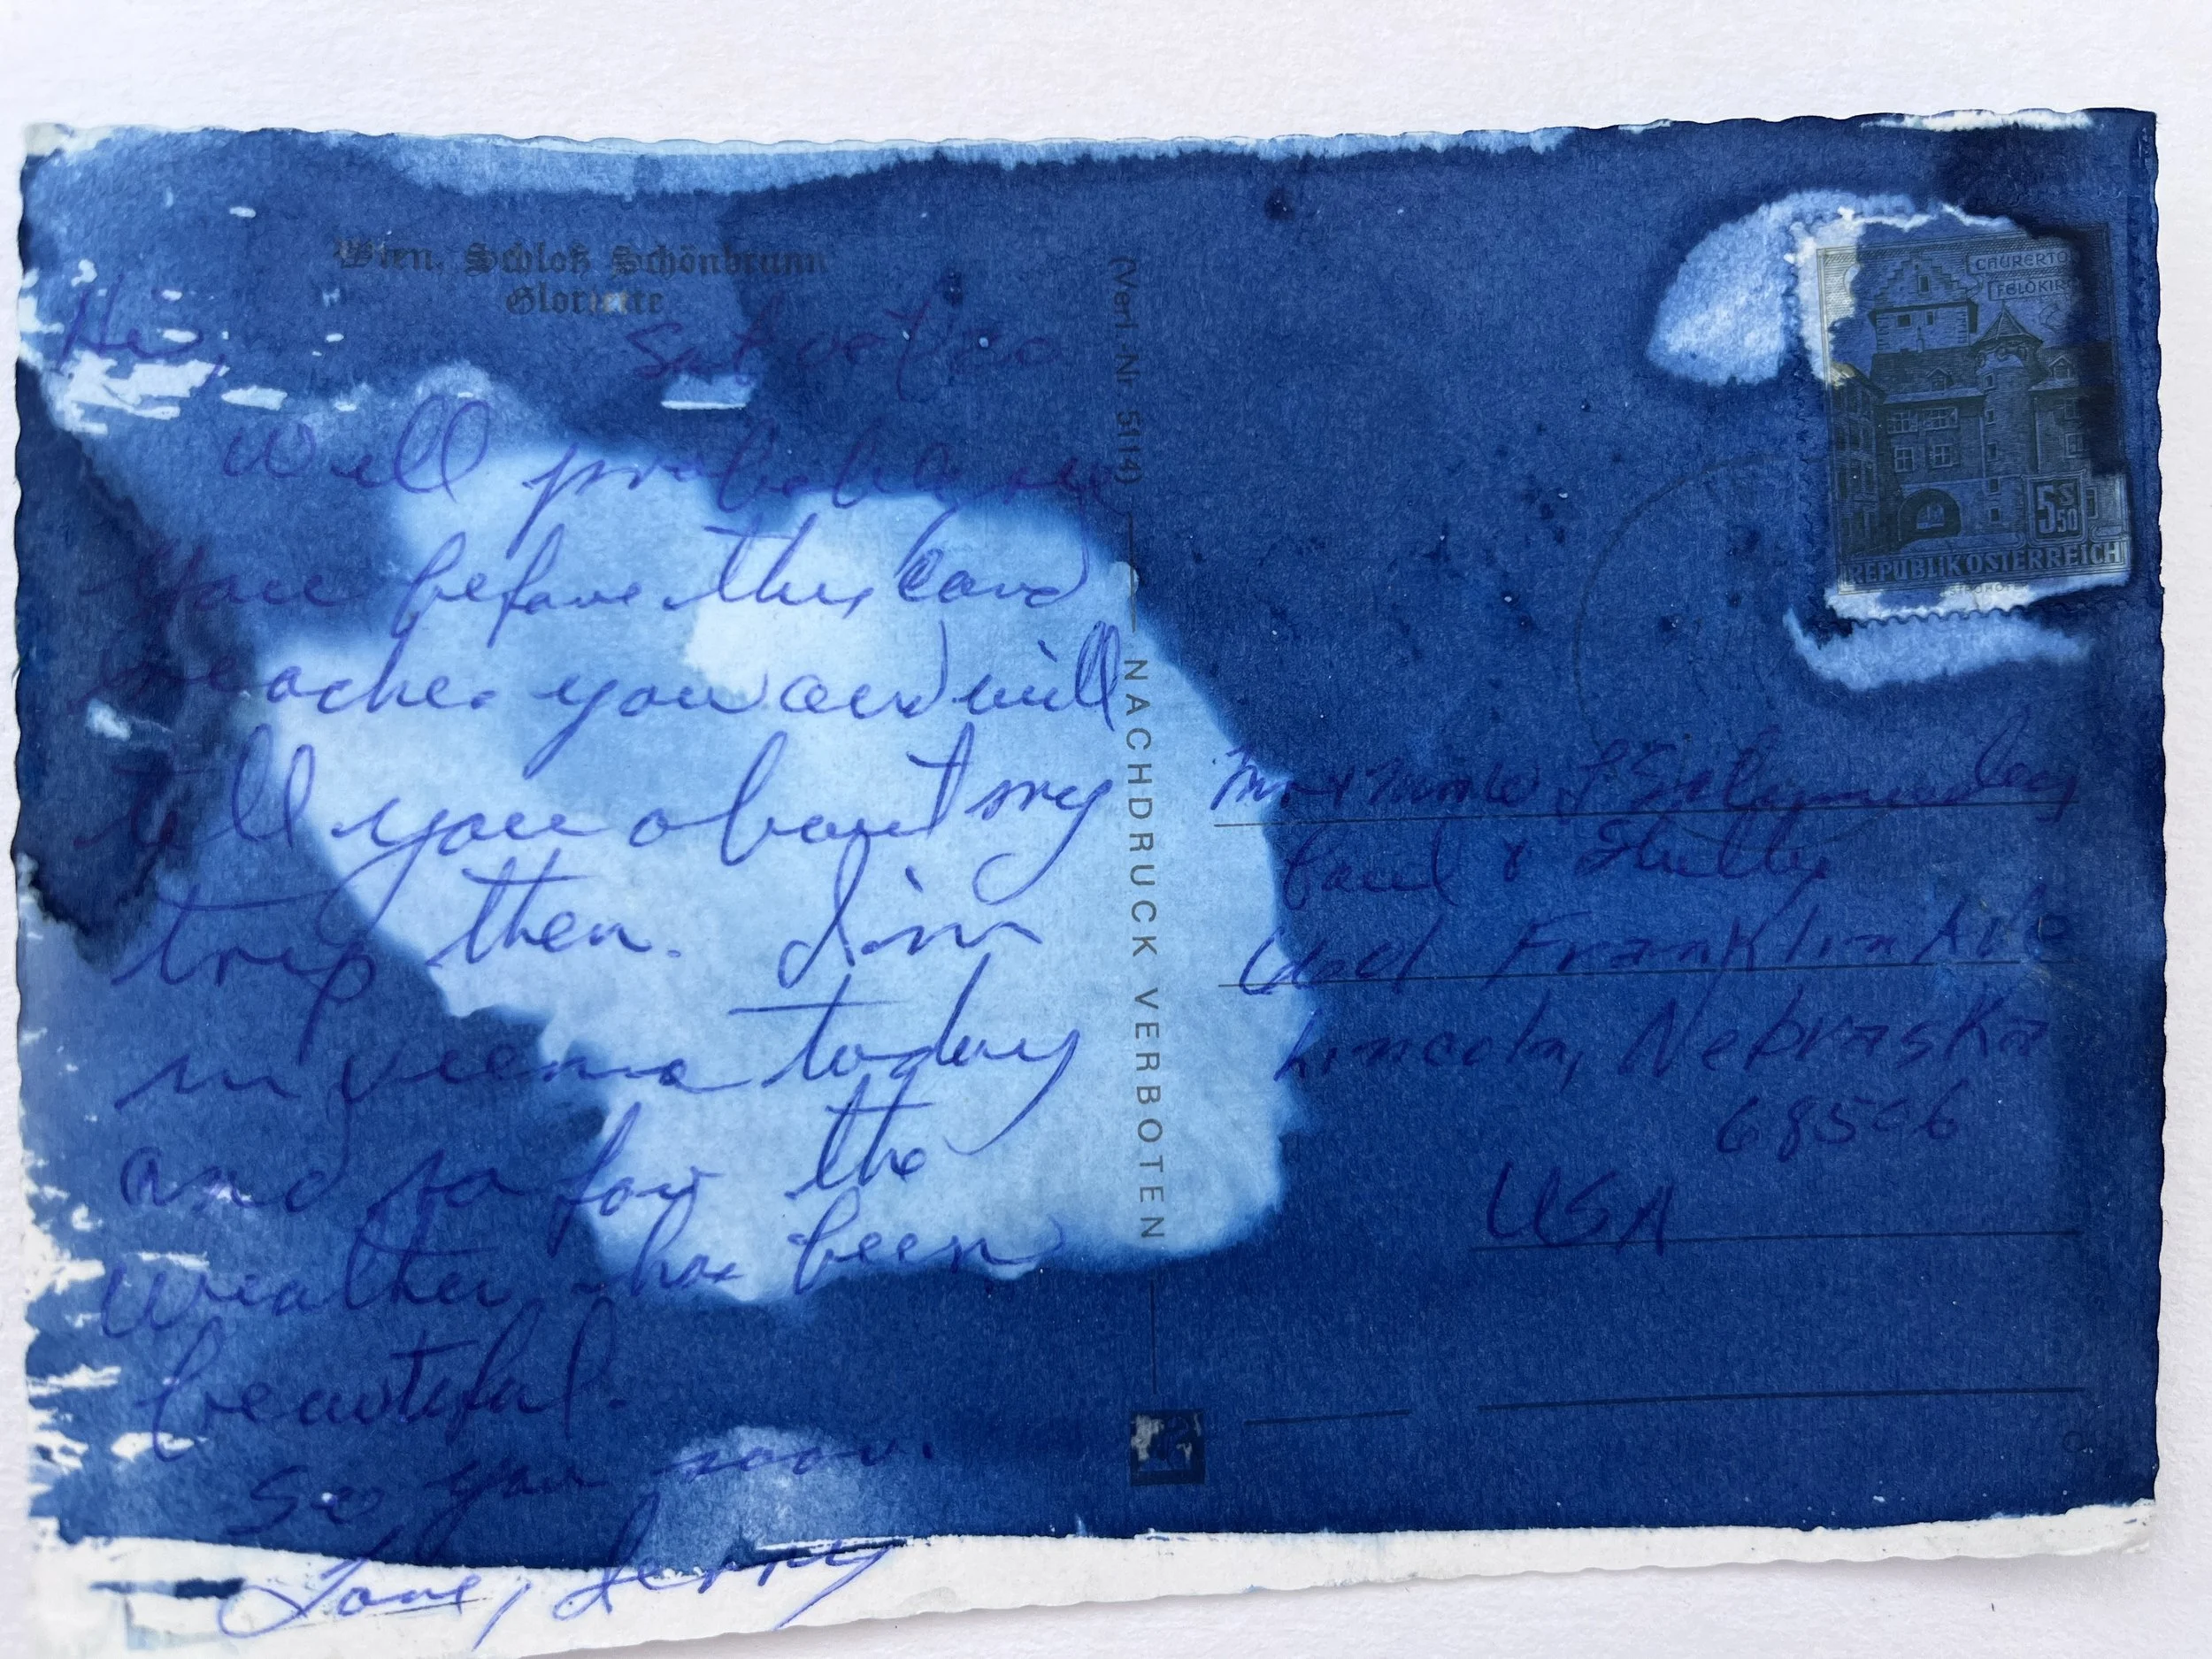 Wien, Schloß Schönbrunn
Gloriette
Hi,
Sat Oct 20
Will probably see
you before this card
reaches you and will
tell you about my
trip then. I'm
in Vienna today
and so far the
weather has been
beautiful.
See you soon.
Love, Jerry
(Verl. Nr. 5114)
NACHDRUCK VERBOTEN
REPUBLIK ÖSTERREICH
5 S 50
Mr &
&
Franklin Ave
Lincoln, Nebraska
68506
USA